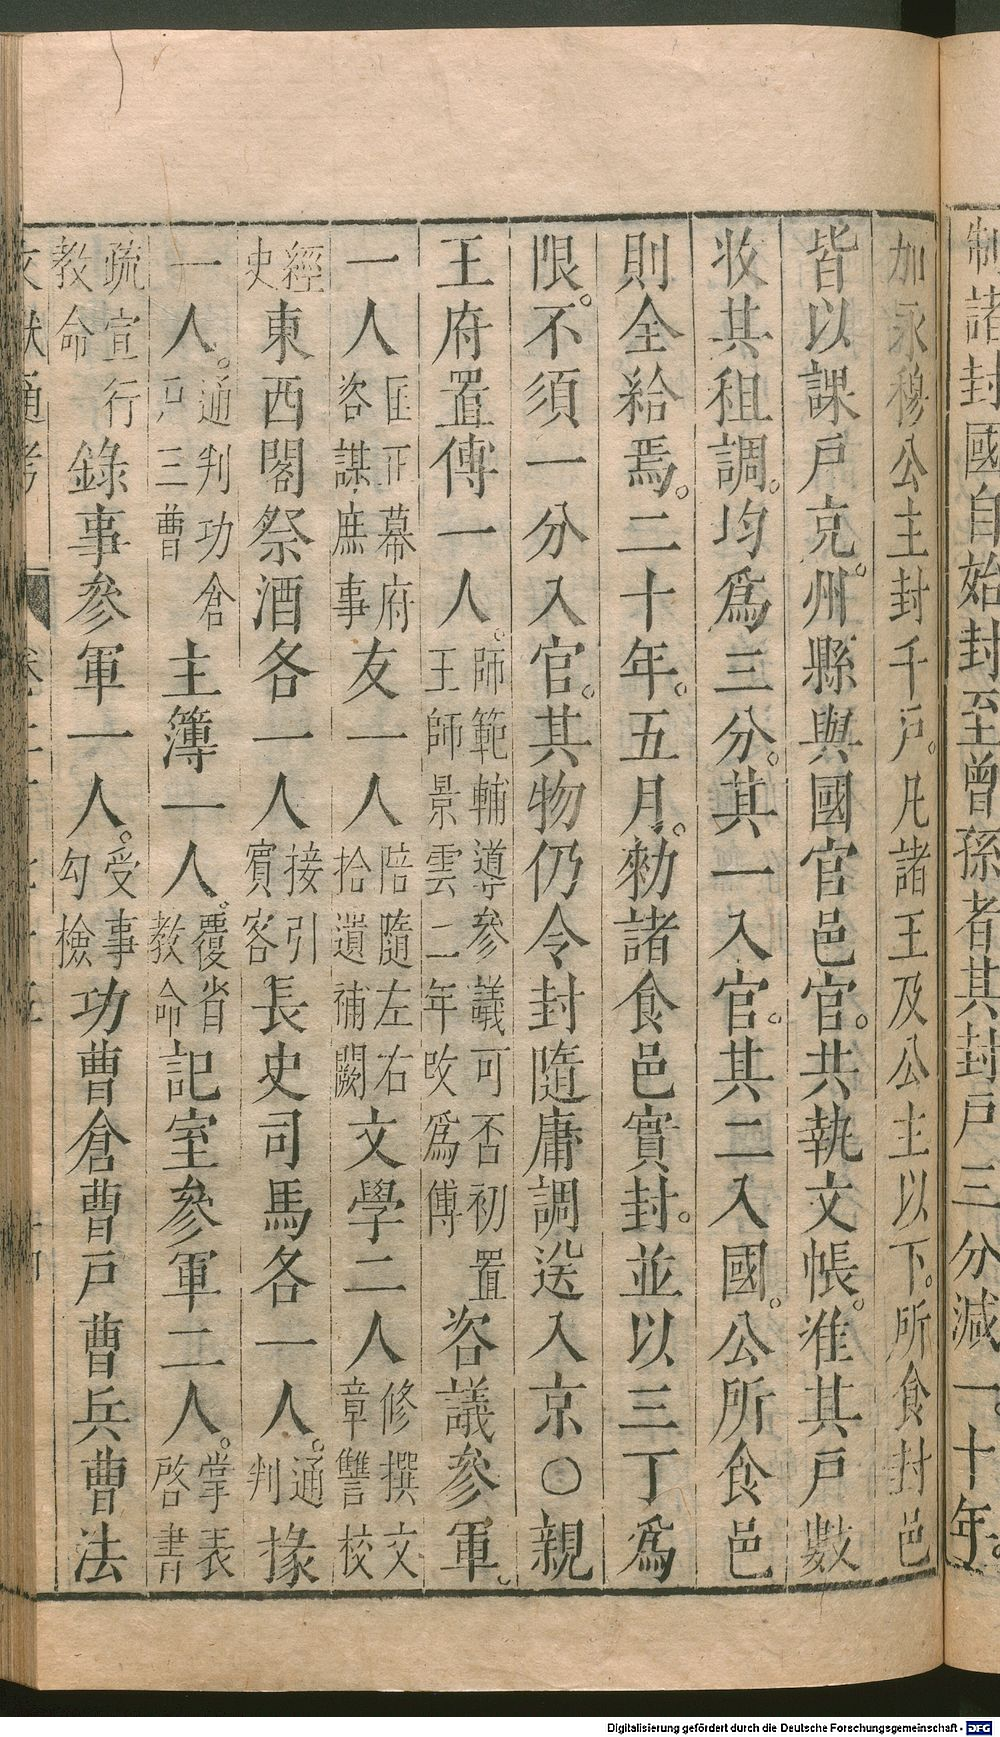 制諸封國自始封至曾孫者其封戸三分減一。十年。
加永穆公主封千戸。凡諸王及公主以下。所食封邑
皆以課戸充。州縣與國官邑官。共執文帳。准其戸數
收其租調。均爲三分。其一入官。其二入國。公所食邑
則全給焉。二十年。五月。勑諸食邑實封。並以三丁爲
限。不須一分入官。其物仍令封隨庸調送入京○親
王府置傅一人。師範輔導參議可否初置王師景雲二年改爲傅咨議參軍。
一人匡正幕府咨謀庶事友一人陪隨左右拾遺補闕文學二人修撰文章讐校
經史東西閤祭酒各一人接引賓客。長史司馬各一人。通判掾
一人。通判功倉戸三曹主簿一人。覆省教命記室參軍二人。掌表啓書
疏宣行教命錄事參軍一人。受事勾檢功曹倉曹戸曹兵曹法
文獻通考
Digitalisierung gefördert durch die Deutsche Forschungsgemeinschaft - DFG